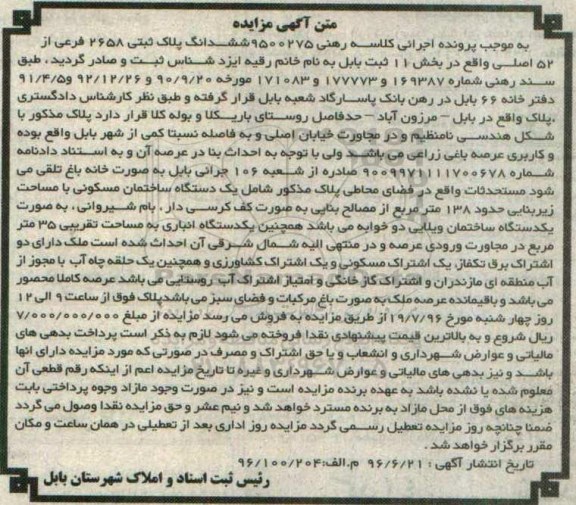 متن آگهی مزایده
به موجب پرونده اجرائی کلاسه رهنی ۹۵۰۰۲۷۵ ششدانگ پلاک ثبتی ۲۶۵۸ فرعی از
۵۲ اصلی واقع در بخش ۱۱ ثبت بابل به نام خانم رقیه ایزد شناس ثبت و صادر گردید ، طبق
سند رهنی شماره ۱۶۹۳۸۷ و ۱۷۷۷۷۳ و ۱۷۱۰۸۳ مورخه ۹۰/۹/۲۰ و ۹۲/۱۲/۲۶ و ۹۱/۴/۵
دفتر خانه ۶۶ بابل در رهن بانک پاسارگاد شعبه بابل قرار گرفته و طبق نظر کارشناس دادگستری
،پلاک واقع در بابل – مرزون آباد – حدفاصل روستای باریکلا و بوله کلا قرار دارد پلاک مذکور با
شکل هندسی نامنظم و در مجاورت خیابان اصلی و به فاصله نسبتا کمی از شهر بابل واقع بوده
و کاربری عرصه باغی زراعی می باشد ولی با توجه به احداث بنا در عرصه آن و به استناد دادنامه
شماره ۹۰۰۹۹۷۱۱۱۱۷۰۰۶۷۸ صادره از شعبه ۱۰۶ جزائی بابل به صورت خانه باغ تلقی می
شود مستحدثات واقع در فضای محاطی پلاک مذکور شامل یک دستگاه ساختمان مسکونی با مساحت
زیربنایی حدود ۱۳۸ متر مربع از مصالح بنایی به صورت کف کرسی دار ، بام شیروانی ، به صورت
یکدستگاه ساختمان ویلایی دو خوابه می باشد همچنین یکدستگاه انباری به مساحت تقریبی ۳۵ متر
مربع در مجاورت ورودی عرصه و در منتهی الیه شمال شرقی آن احداث شده است ملک دارای دو
اشتراک برق تکفاز، یک اشتراک مسکونی و یک اشتراک کشاورزی و همچنین یک حلقه چاه آب با مجوز از
آب منطقه ای مازندران و اشتراک گاز خانگی و امتیاز اشتراک آب روستایی می باشد عرصه کاملا محصور
می باشد و باقیمانده عرصه ملک به صورت باغ مرکبات و فضای سبز می باشدپلاک فوق از ساعت ۹ الی ۱۲
روز چهار شنبه مورخ ۱۹/۷/۹۶ از طریق مزایده به فروش می رسد مزایده از مبلغ ۷/۰۰۰/۰۰۰/۰۰۰
ریال شروع و به بالاترین قیمت پیشنهادی نقدا فروخته می شود لازم به ذکر است پرداخت بدهی های
مالیاتی و عوارض شهرداری و انشعاب و یا حق اشتراک و مصرف در صورتی که مورد مزایده دارای انها
باشد و نیز بدهی های مالیاتی و عوارض شهرداری و غیره تا تاریخ مزایده اعم از اینکه رقم قطعی آن
معلوم شده یا نشده باشد به عهده برنده مزایده است و نیز در صورت وجود مازاد وجوه پرداختی بابت
هزینه های فوق از محل مازاد به برنده مسترد خواهد شد و نیم عشر و حق مزایده نقدا وصول می گردد
ضمنا چنانچه روز مزایده تعطیل رسمی گردد مزایده روز اداری بعد از تعطیلی در همان ساعت و مکان
مقرر برگزار خواهد شد .
تاریخ انتشار آگهی : ۹۶/۶/۲۱ م.الف:۹۶/۱۰۰/۲۰۴
رئیس ثبت اسناد و املاک شهرستان بابل